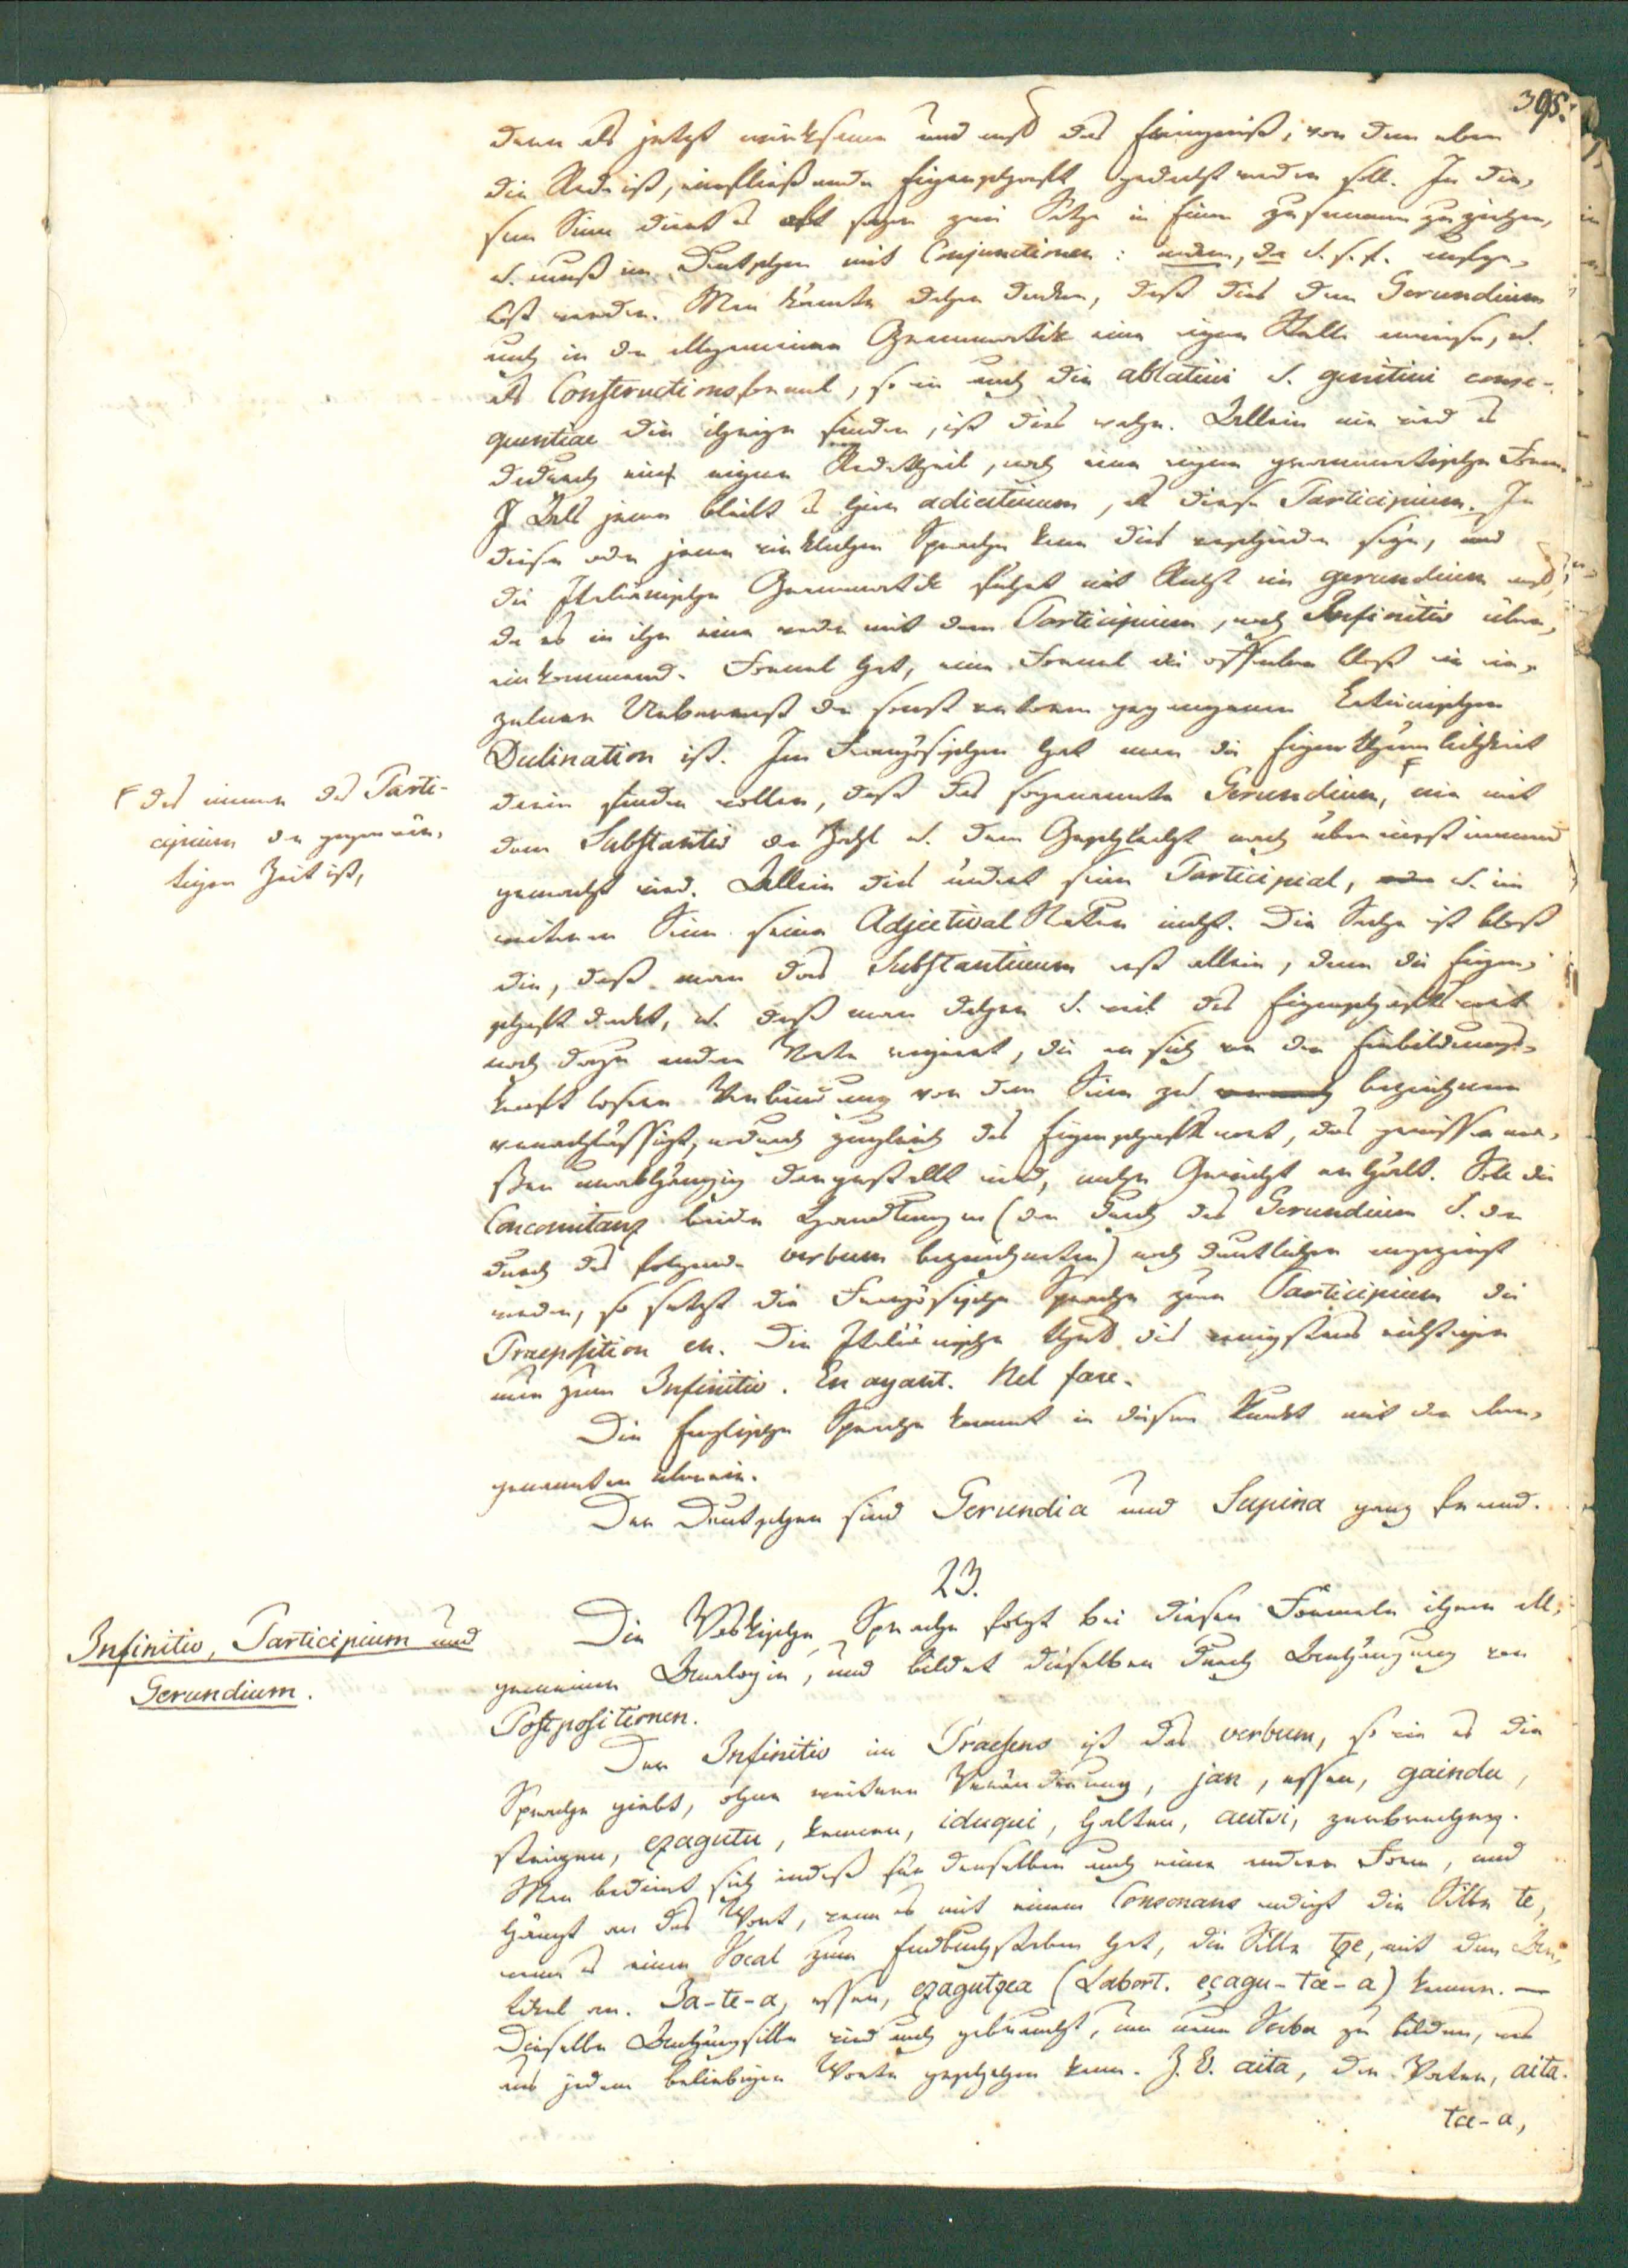 395.
denn als jetzt wirksame und auf das Ereigniß, von dem eben
die Rede ist, einfließende Eigenschaft gedacht werden soll. In die,
sem Sinn dient es oft sogar zwei Sätze in Einen zusammenzuziehen,
u. muß im Deutschen mit Conjunctionen: indem, da u. s. f. aufge,
löst werden. Man könnte daher denken, daß dies dem Gerundium
auch in der allgemeinen Grammatik eine eigne Stelle anweise, u.
als Constructionsformel, so wie auch die ablatiui u. genitiui conse-
quentiae die ihrige finden, ist dies wahr. Allein nie wird es
dadurch ein eigner Redetheil, noch eine eigne grammatische Form.
Als jener bleibt es hier adiectiuum, als diese Participium. In
dieser oder jener wirklichen Sprache kann dies verschieden seyn, und
die Italiänische Grammatik führt mit Recht ein gerundium auf,
da es in ihr eine weder mit dem Participium, noch Infinitiv über,
einkommende Formel hat, eine Formel die offenbar bloß ein ein,
zelner Ueberrest der sonst verloren gegangenen Lateinischen
Declination ist. Im Französischen hat man die Eigenthümlichkeit
darin finden wollen, daß das sogenannte Gerundium, F nie mit
dem Substantiv der Zahl u. dem Geschlecht nach übereinstimmend
gemacht wird. Allein dies ändert seine Participial, u. im
weiteren Sinn seine Adjectival Natur nicht. Die Sache ist bloß
die, daß man das Substantiuum erst allein, dann die Eigen,
schaft denkt, u. daß man daher u. weil das Eigenschaftswort
noch dazu andre Worte regiert, die an sich von der Einbildungs,
kraft losere Verbindung von dem Sinn zu bezeichnen
vernachlässigt, wodurch zugleich das Eigenschaftswort, das gewisserma,
ßen unabhängig dargestellt wird, mehr Gewicht erhält. Soll die
Concomitanz beider Handlungen (der durch das Gerundium u. der
durch das folgende verbum bezeichneten) noch deutlicher angezeigt
werden, so setzt die Französische Sprache zum Participium die
Praeposition en. Die Italiänische thut dies wenigstens richtiger
nur zum Infinitiv. En ayant. Nel fare.
Die Englische Sprache kommt in diesem Punkt mit den eben,
genannten überein.
Der Deutschen sind Gerundia und Supina ganz fremd.
F das immer das Parti-
cipium der gegenwär,
tigen Zeit ist,
23.
Infinitiv, Participium und
Gerundium.
Die Vaskische Sprache folgt bei diesen Formeln ihrer all,
gemeinen Analogie, und bildet dieselben durch Anhängung von
Postpositionen.
Der Infinitiv im Praesens ist das verbum, so wie es die
Sprache giebt, ohne weitere Veränderung, jan, essen, gaindu,
steigen, ezagutu, kennen, iduqui, halten, autsi, zerbrechen.
Man bedient sich indeß für denselben auch einer andern Form, und
hängt an das Wort, wenn es mit einem Consonans endigt die Silbe te,
wenn es einen Vocal zum Endbuchstaben hat, die Silbe tze, mit dem Ar,
tikel an. Ja-te-a, essen, ezagutzea (Labort. eçagu-tce-a) kennen. —
Dieselbe Anhängsilbe wird auch gebraucht, um neue Verba zu bilden, was
aus jedem beliebigen Worte geschehen kann. Z. B. aita, der Vater, aita-
tce-a,